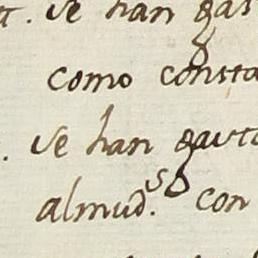 se han gas
como consta
se han gasta
almud.s con